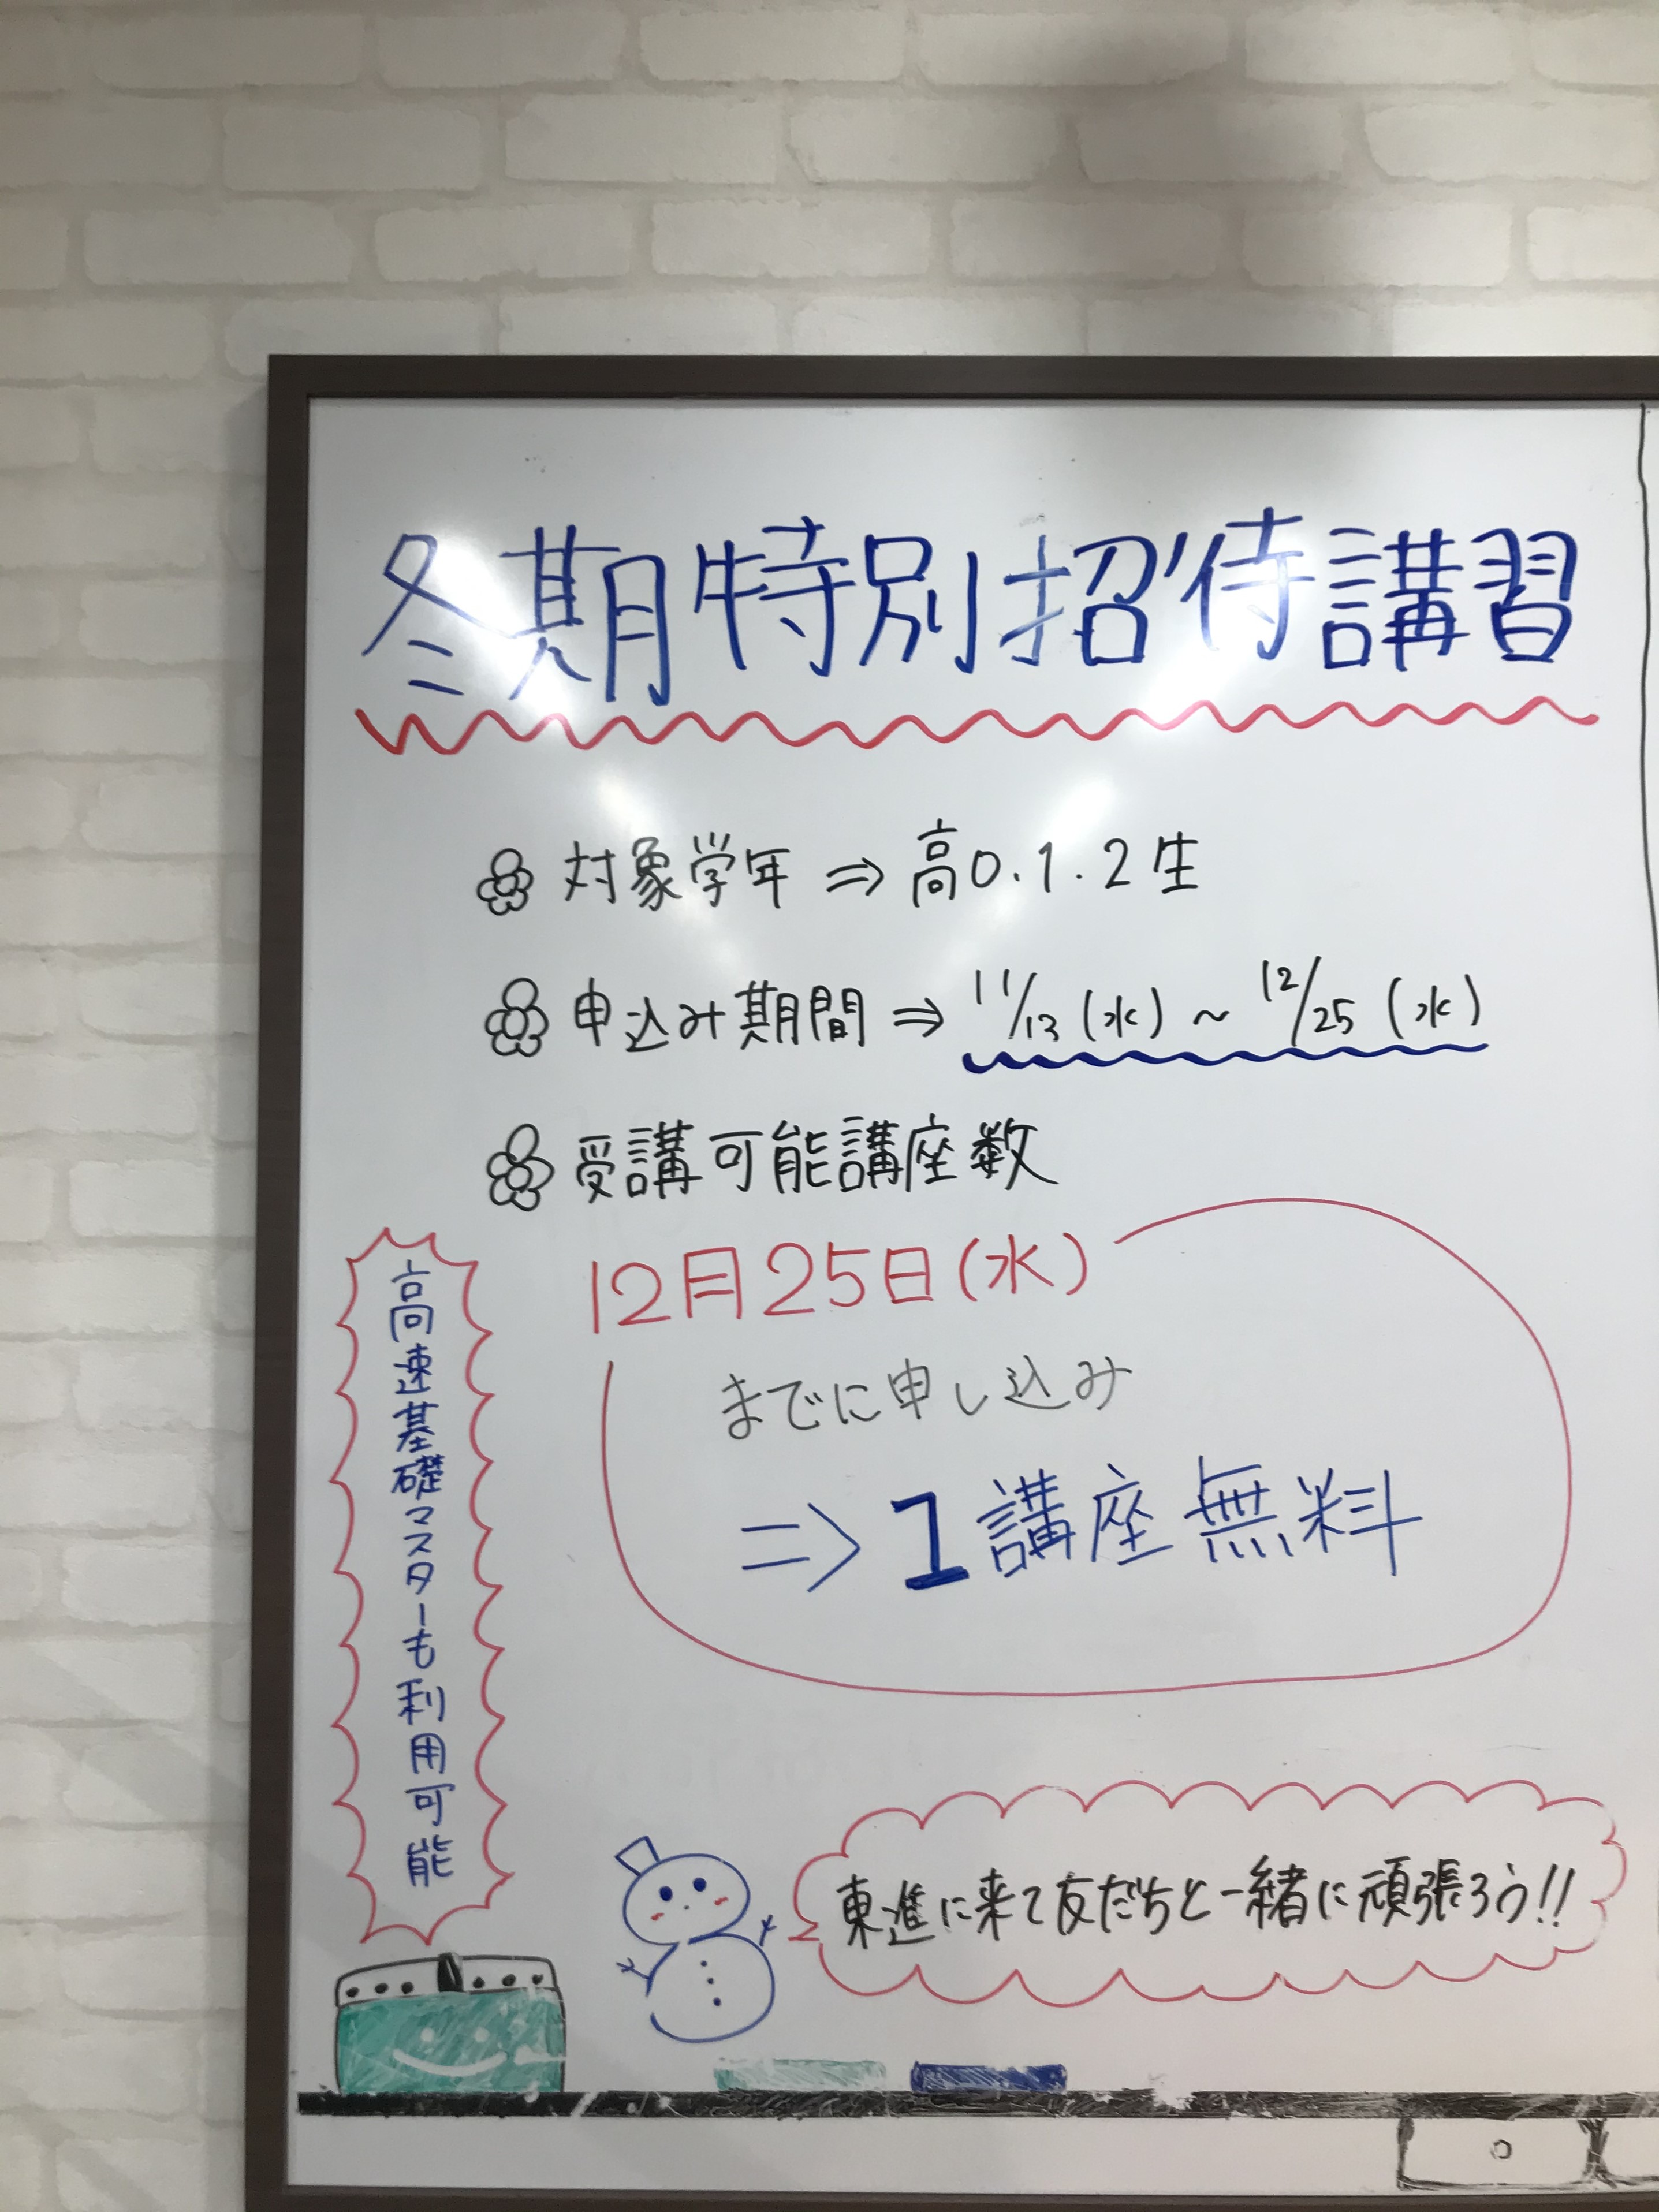 冬期特別招待講習
対象学年 ⇒ 高0.1.2生
申込み期間 ⇒ 11/13(水)～12/25(水)
受講可能講座数
12月25日(水)
までに申し込み
⇒1講座無料
高速基礎マスターも利用可能
東進に来て友だちと一緒に頑張ろう!!